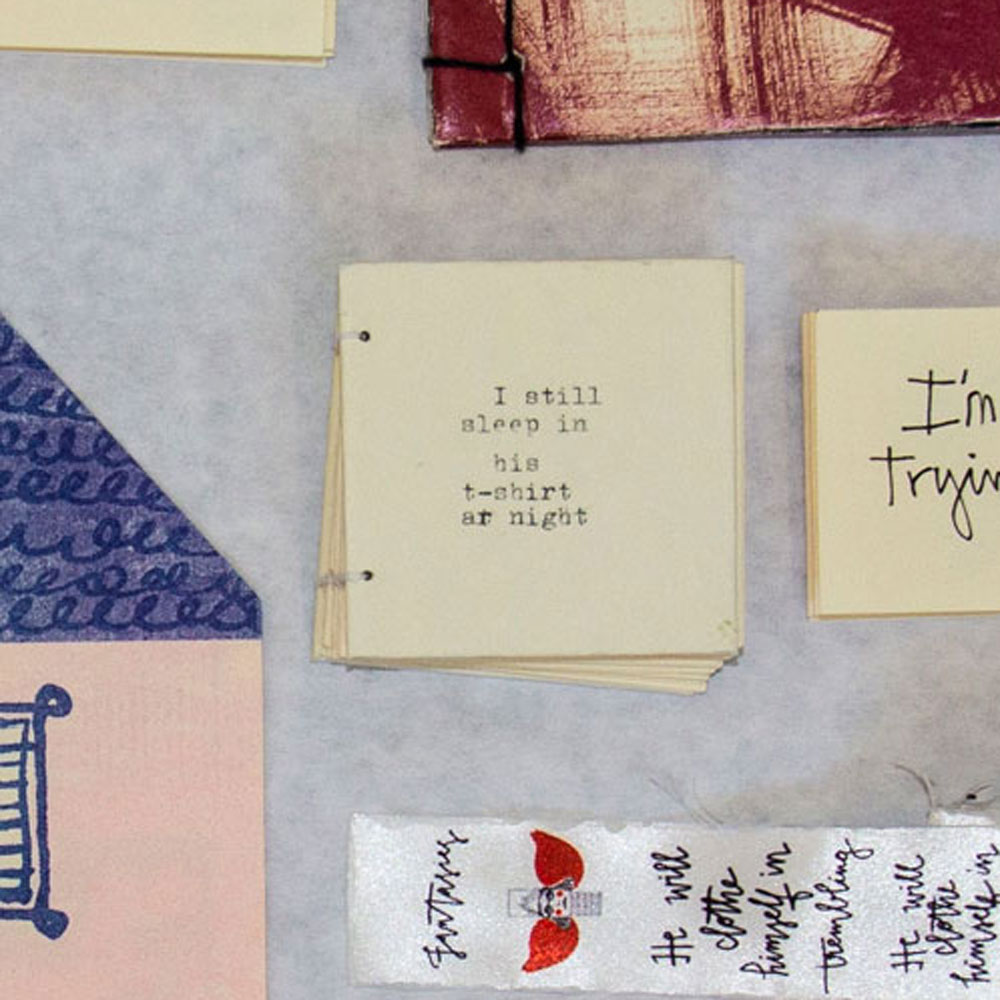 I still
sleep in
his
t-shirt
ar night
I'm
Trying
Fantasies
He will
clothe
himself in
trembling
He will
clothe
himself in